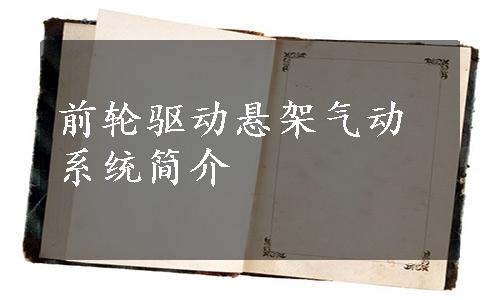 前轮驱动悬架气动
系统简介